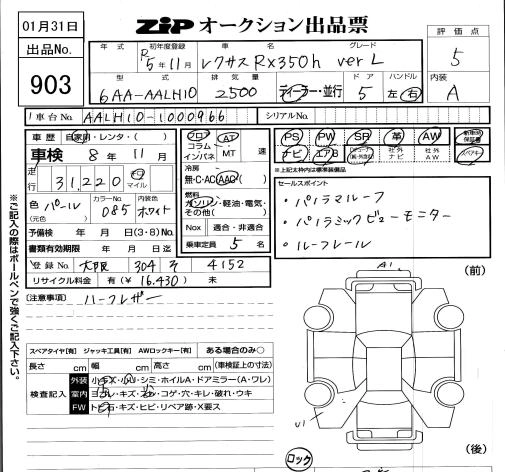 01月31日
出品No.
903
ZIP オークション出品票
評価点
5
内装
A
年式 初年度登録 車名 グレード
R5年11月 レクサス Rx350h ver L
型式 排気量 ドア ハンドル
6AA-AALH10 2500 ディーラー・並行 5 左 右
車台No. AALH10-1000966 シリアルNo.
車歴 自家用・レンタ・( )
車検 8年 11月
走行 31,220 km マイル
色 パール (元色) カラーNo. 085 内装色 ホワイト
予備検 年 月 日(3・8)No.
書類有効期限 年 月 日迄
登録No. 大阪 304 そ 4152
リサイクル料金 有(¥16,430) 未
フロア AT
コラム インパネ MT 速
冷房
無・C・AC AAC
燃料
ガソリン・軽油・電気・その他( )
Nox 適合・非適合
乗車定員 5 名
PS PW SR 革 AW 新車時保証書
ナビ エアB 社外ナビ 社外AW スペアキー
※上記太枠内は標準装備品
セールスポイント
・パノラマルーフ
・パノラミックビューモニター
・ルーフレール
[注意事項] ハーフレザー
スペアタイヤ[有] ジャッキ工具[有] AWロックキー[有] ある場合のみ○
長さ cm 幅 cm 高さ cm (車検証上の寸法)
検査記入
外装 小キズ・小凹・シミ・ホイルA・ドアミラー(A・ワレ)
室内 ヨゴレ・キズ・スレ・コゲ・穴・キレ・破れ・ウキ
FW トビ石・キズ・ヒビ・リペア跡・X要ス
※ご記入の際はボールペンで強くご記入下さい。
A1
(前)
U1
(後)
ロック